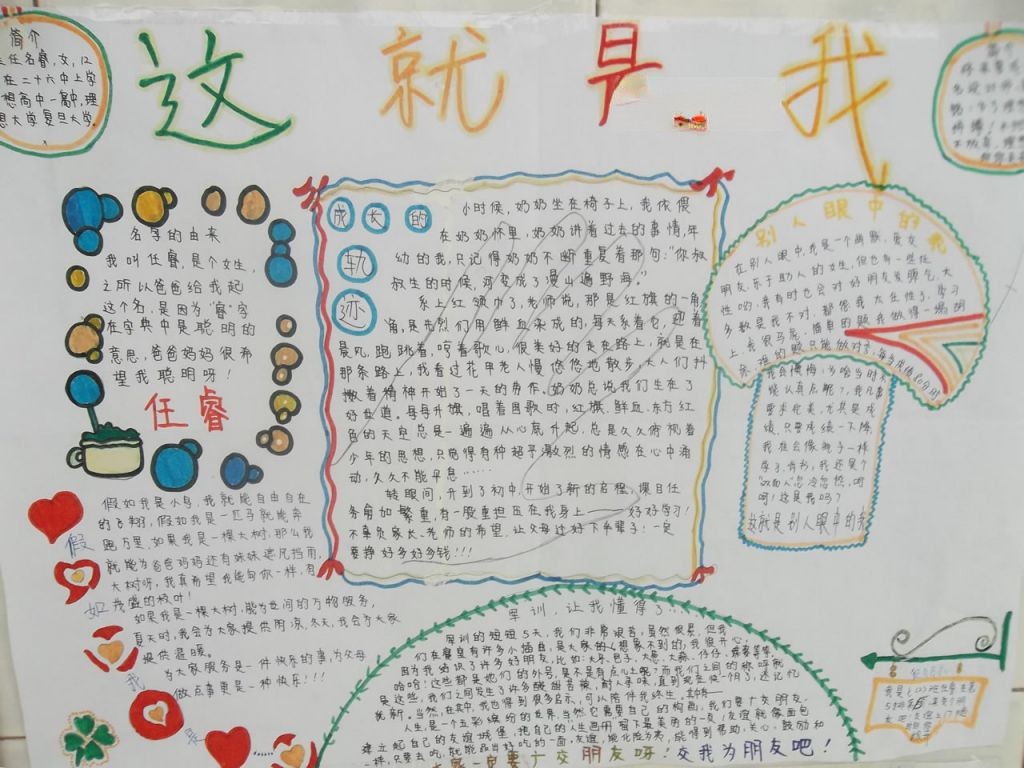 这就是我
简介
任名睿,女,12
在二十六中上学
想高中一高中,理
想大学复旦大学。
名字的由来
我叫任睿,是个女生,
之所以爸爸给我起
这个名,是因为“睿”字
在字典中是聪明的
意思,爸爸妈妈很希
望我聪明呀!
任睿
成长的
轨
迹
小时候,奶奶坐在椅子上,我依偎
在奶奶怀里,奶奶讲着过去的事情,年
幼的我,只记得奶奶不断重复着那句:“你放
放生的时候,河变成了漫山遍野海。”
系上红领巾了,老师说,那是红旗的一角
角,是先烈们用鲜血染成的,每天系着它,迎着
晨光,跑跳着,哼着歌儿,很美好的走在路上,就是在
那条路上,我看过花甲老人慢悠悠地散步,大人们抖
擞着精神开始了一天的劳作。奶奶总说我们生在了
好世道。每每升旗,唱着国歌时,红旗、鲜血、东方红
色的天空总是一遍遍从心底升起,总是久久俯视着
少年的思想,只觉得有种超乎激烈的情感在心中涌
动,久久不能平息……
转眼间,升到了初中,开始了新的启程,课目任
务有如繁重,有一股重担压在我身上——好好学习!
不辜负家长、老师的希望,让父母过好下半辈子!一定
要挣好多好多钱!!!
别人眼中的我
在别人眼中,我是一个幽默、爱交
朋友,乐于助人的女生,但也有一些任
性的,我有时也会对好朋友发脾气,大
多数是我不对,都怪我太任性了,学习
上,我很马虎,简单的题我做得一塌糊
要求完美,尤其是成
绩,只要成绩一下降,
我在会像疯子一样
学习,有时,我还是个
啊!这是我吗?
这就是别人眼中的我
假如我
假如我是小鸟,我就能自由自在
的飞翔,假如我是一匹马就能奔
跑万里,如果我是一棵大树,那么我
就能为爸爸妈妈还有妹妹遮风挡雨,
大树呀,我真希望我能向你一样,有
茂盛的枝叶!
如果我是一棵大树,能为世间的万物服务,
夏天时,我会为大家提供阴凉,冬天,我会为大家
提供温暖。
为大家服务是一件快乐的事,为父母
做点事更是一种快乐!!!
军训,让我懂得了...
军训的短短5天,我们非常艰苦,虽然很累,但我
们在磨哀有许多小插曲,是大家的心想象不到的,我很开心,
因为我结识了许多好朋友,比如:大牙、包子、大葱、大蒜、仔仔、蘑菇等等,
哈哈!这些都是她们的外号,是不是有点心土呢?而我们之间的称呼就
是这些,我们之间发生了许多酸甜苦辣,耐人寻味,直到现在快一个月了,还记忆
犹新。当然,在其中,我也得到很多启示,可以陪伴我终生。其中——
人生是一个五彩缤纷的世界,当然它需要自己的构画,我们要广交朋友,
建立起自己的友谊城堡,把自己的人生画册写下最美易的一页!友谊就像面包
一样,只要去吃,就能品出好吃的一面,友谊,能化险为夷,能得到帮助、关心、鼓励和
一定要广交朋友呀!交我为朋友吧!